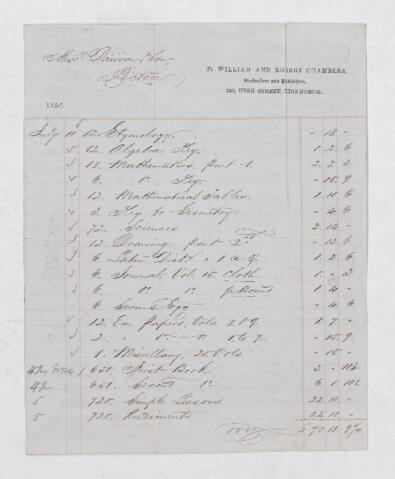 Messrs Dawson & Son
Pictou
To WILLIAM AND ROBERT CHAMBERS,
Booksellers and Publishers,
339, HIGH STREET, EDINBURGH.
1851.
July 10 12 Etymology - 18 -
12 Algebra Key 1 2 6
18 Mathematics part 1. 2 7 3
6 Do Key - 15 9
12 Mathematical Tables 1 11 6
3 Key to Geometry - 4 6
72 Sciences 2 14 -
12 Drawing part 2 - 13 6
6 Latin Dicty 1 2 6
6 Journal Vol. 15 Cloth 1 - 3
6 Do Do Bound 1 4 -
6 Swan's Egg - 4 6
12 Papers, Vols 1 7 -
2 Do - 15 9
1 Miscellany 20 Vols - 15 -
630 First Book 3 - 11½
630 Second Do 6 1 10½
5 720 Simple Lessons 22 10 -
5 720 Rudiments 22 10 -